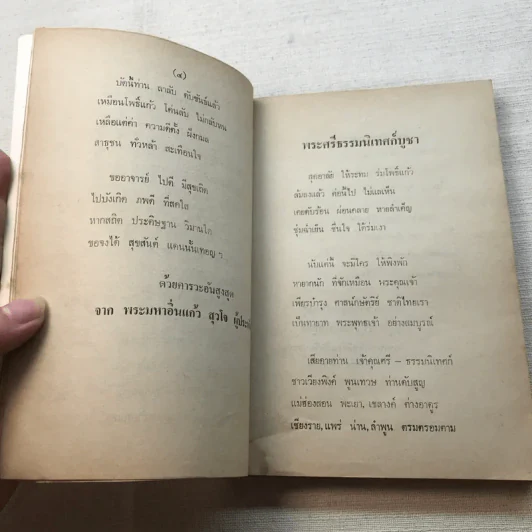 (๔)
บัดนี้ท่าน ลาลับ ดับขันธ์แล้ว
เหมือนโพธิ์แก้ว โค่นล้ม ไม่กลับหน
เหลือแต่ค่า ความดีตั้ง ฝั่งกมล
สาธุชน ทั่วหล้า สะเทือนใจ
ขออาจารย์ ไปดี มีสุขเถิด
ไปบังเกิด ภพดี ที่สดใส
หากสถิต ประดิษฐาน วิมานใด
ขอจงได้ สุขสันต์ แดนนั้นเทอญ ฯ
ด้วยคารวะอันสูงสุด
จาก พระมหาอินแก้ว สุวโจ
พระศรีธรรมนิเทศก์บูชา
สุดอาลัย ให้ระทม ร่มโพธิ์แก้ว
ล้มลงแล้ว ต่อนี้ไป ไม่แลเห็น
เคยดับร้อน ผ่อนคลาย หายลำเค็ญ
ชุ่มฉ่ำเย็น ชื่นใจ ได้ร่มเงา
นับแต่นี้ จะมีใคร ให้พึ่งพัก
หายากนัก ที่จักเหมือน พระคุณเจ้า
เพียรบำรุง ศาสน์กษัตริย์ ชาติไทยเรา
เป็นทายาท พระพุทธเจ้า อย่างสมบูรณ์
เสียดายท่าน เจ้าคุณศรี – ธรรมนิเทศก์
ชาวเวียงพิงค์ พูนเทวษ ท่านดับสูญ
แม่ฮ่องสอน พะเยา, เขลางค์ ต่างอาดูร
เชียงราย, แพร่ น่าน, ลำพูน ตรมตรอมตาม